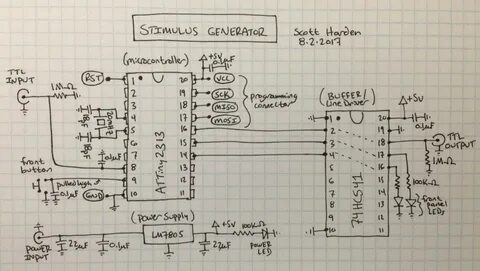 STIMULUS GENERATOR
Scott Harden
8.2.2017
TTL
INPUT
1MΩ
(microcontroller)
+5V
0.1µF
RST
VCC
SCK
MISO
MOSI
programming
connector
1
2
3
4
5
6
7
8
9
10
20
19
18
17
16
15
14
13
12
11
ATTiny2313
18pF
18pF
20MHz
0.1µF
front
button
pulled high
0.1µF
GND
(BUFFER/
Line Driver)
+5V
0.1µF
1
2
3
4
5
6
7
8
9
10
20
19
18
17
16
15
14
13
12
11
74HC541
TTL
OUTPUT
1MΩ
100KΩ
front
panel
LEDs
(Power Supply)
+5V
100KΩ
LM7805
POWER
INPUT
0.1µF
22µF
POWER
LED